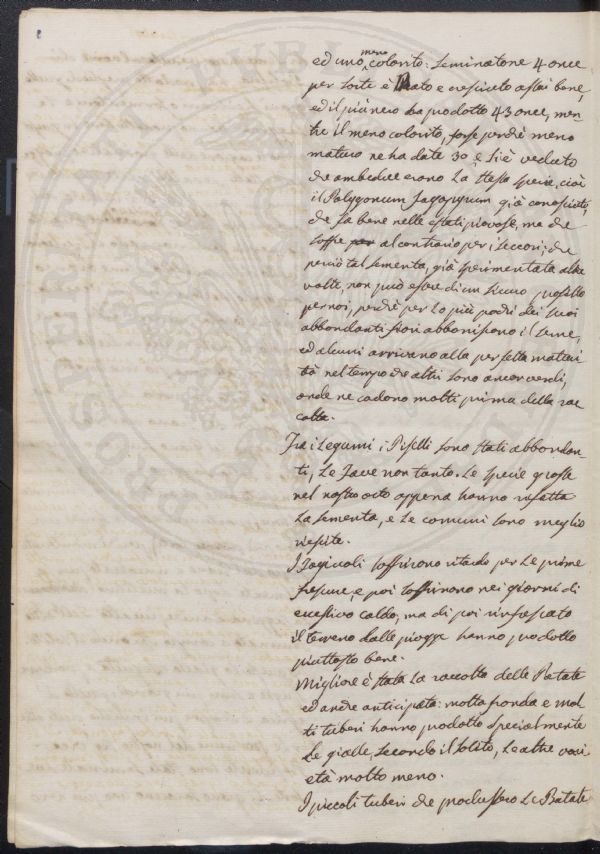 ed uno meno colorito: seminatone 4 once
per sorte è nato e cresciuto assai bene,
ed il più nero ha prodotto 43 once, men-
tre il meno colorito, forse perchè meno
maturo ne ha date 30 e si è veduto
che ambedue erano la stessa specie, cioè
il Polygonum fagopyrum già conosciuto,
che fa bene nelle estati piovose, ma che
soffre per al contrario per i secconi; che
perciò tal sementa, già sperimentata altre
volte, non può essere di un sicuro prodotto
per noi, perchè per lo più pochi dei suoi
abbondanti fiori abboniscono il seme,
ed alcuni arrivano alla perfetta maturi
tà nel tempo che altri sono ancor verdi,
onde ne cadono molti prima della rac
colta.
Fra i Legumi, i Piselli sono stati abbondan-
ti, le Fave non tanto. Le specie grosse
nel nostro orto appena hanno rifatta
la sementa, e le comuni sono meglio
riescite.
I Fagiuoli soffrirono ritardo per le prime
frescure, e poi soffrirono nei giorni di
eccessivo caldo, ma di poi rinfrescato
il terreno dalle piogge hanno prodotto
piuttosto bene.
Migliore è stata la raccolta delle Patate
ed anche anticipata: molta fronda e mol
ti tuberi hanno prodotto specialmente
le gialle, secondo il solito, le altre vari
età molto meno.
I piccoli tuberi che produssero le Patate